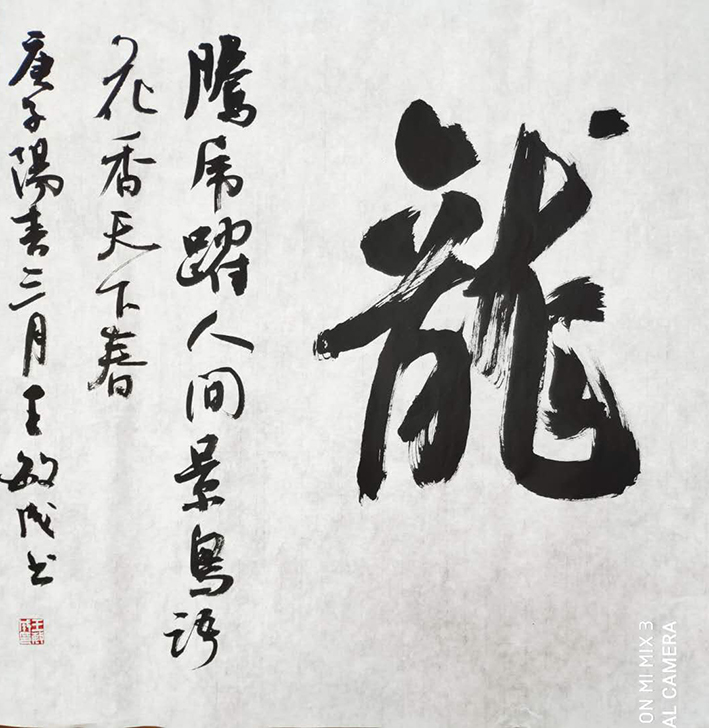 龍
騰虎躍人间景鳥语
花香天下春
庚子陽春三月王敏成书
ON MI MIX 3
AL CAMERA